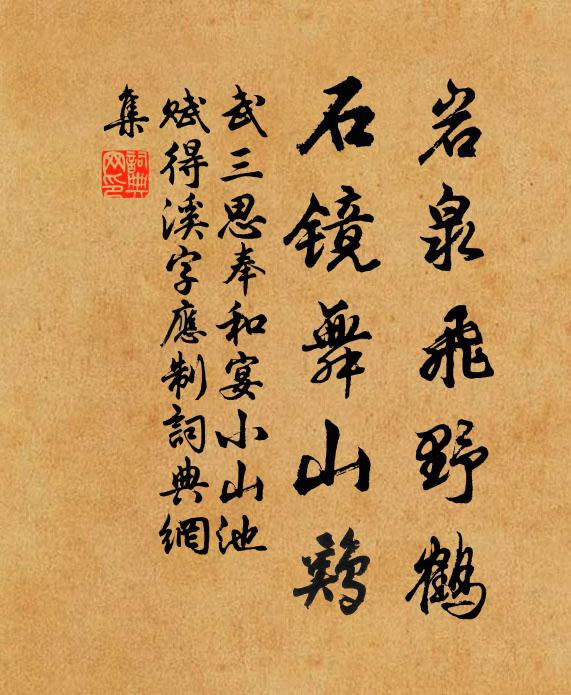 岩泉飛野鶴
石镜舞山鷄
武三思奉和宴小山池
賦得溪字應制詞典網
集
詞典網印